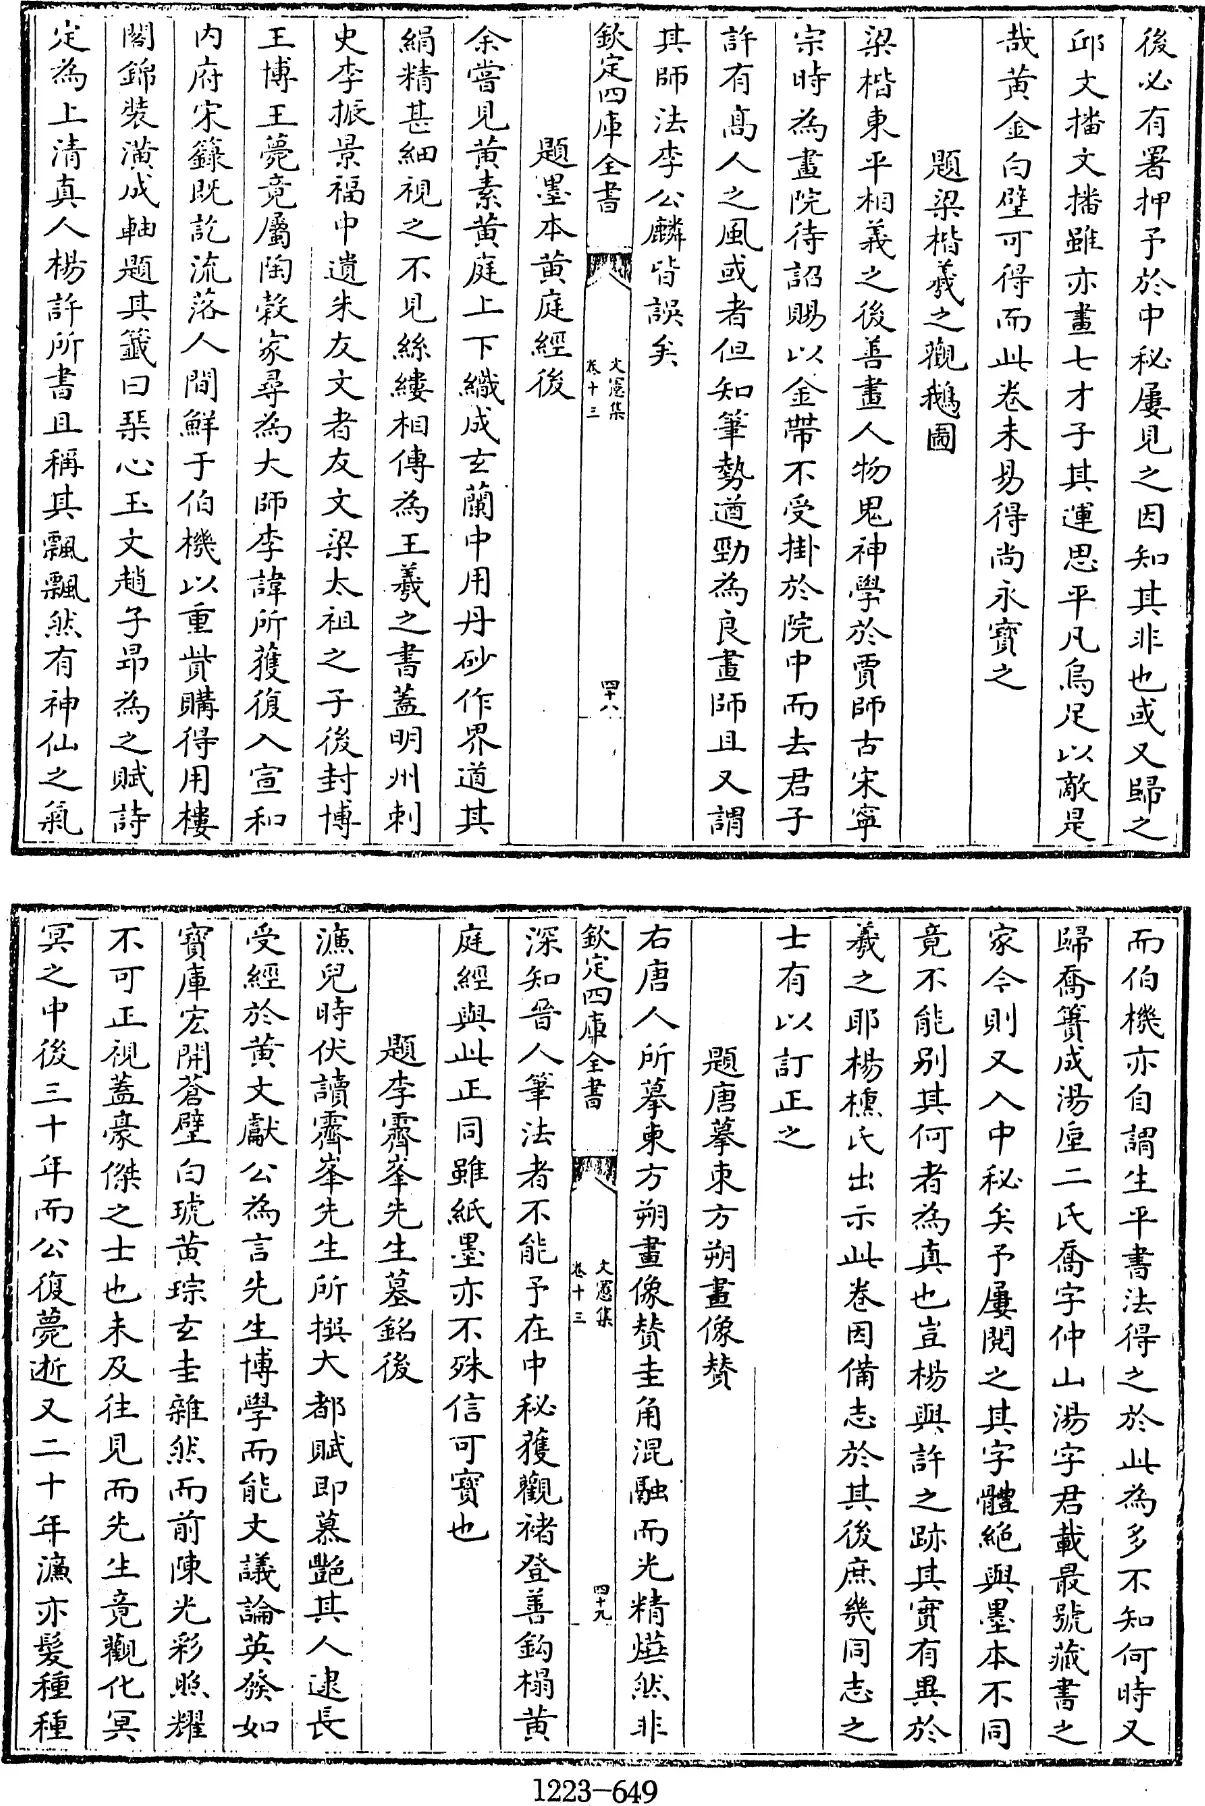 後必有署押予於中秘屢見之因知其非也或又歸之
邱文播文播雖亦畫七才子其運思平凡烏足以敵是
哉黄金白璧可得而此卷未易得尚永寳之
題梁楷羲之觀鵝圖
梁楷東平相義之後善畫人物鬼神學於賈師古宋寧
宗時為畫院待詔賜以金帶不受掛於院中而去君子
許有髙人之風或者但知筆勢遒勁為良畫師且又謂
其師法李公麟皆誤矣
欽定四庫全書
文憲集
卷十三
四十八
題墨本黄庭經後
余嘗見黄素黄庭上下織成玄蘭中用丹砂作界道其
絹精甚細視之不見絲縷相傳為王羲之書蓋明州刺
史李振景福中遺朱友文者友文梁太祖之子後封博
王博王薨竟屬陶穀家尋為大師李諱所獲復入宣和
内府宋籙既訖流落人間鮮于伯機以重貲購得用樓
閣錦裝潢成軸題其籤曰琹心玉文趙子昻為之賦詩
定為上清真人楊許所書且稱其飄飄然有神仙之氣
而伯機亦自謂生平書法得之於此為多不知何時又
歸喬簣成湯垕二氏喬字仲山湯字君載最號藏書之
家今則又入中秘矣予屢閱之其字體絶與墨本不同
竟不能别其何者為真也豈楊與許之跡其實有異於
羲之耶楊檼氏出示此卷因備志於其後庶幾同志之
士有以訂正之
題唐摹東方朔畫像賛
右唐人所摹東方朔畫像賛圭角混融而光精爗然非
欽定四庫全書
文憲集
卷十三
四十九
深知晉人筆法者不能予在中秘獲觀褚登善鈎榻黄
庭經與此正同雖紙墨亦不殊信可寳也
題李霽峯先生墓銘後
濂兒時伏讀霽峯先生所撰大都賦即慕艷其人逮長
受經於黄文獻公為言先生博學而能文議論英發如
寳庫宏開蒼璧白琥黄琮玄圭雜然而前陳光彩照耀
不可正視蓋豪傑之士也未及往見而先生竟觀化冥
冥之中後三十年而公復薨逝又二十年濂亦髪種種
1223-649